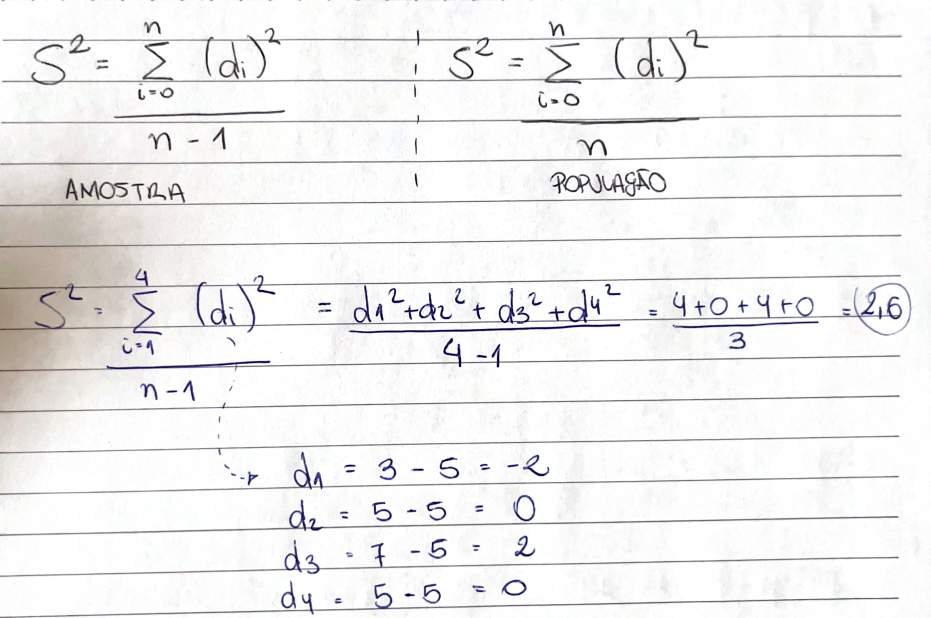 S² = n Σ i=0 (di)² / n - 1
AMOSTRA
S² = n Σ i=0 (di)² / n
POPULAÇÃO
S² = 4 Σ i=1 (di)² / n - 1 = d1² + d2² + d3² + d4² / 4 - 1 = 4 + 0 + 4 + 0 / 3 = 2,6
d1 = 3 - 5 = -2
d2 = 5 - 5 = 0
d3 = 7 - 5 = 2
d4 = 5 - 5 = 0